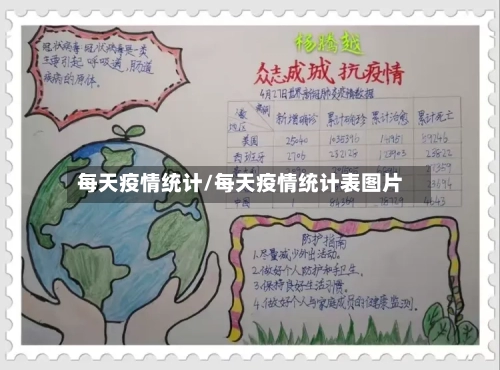 冠状病毒:冠状病毒是一类
主要引起呼吸道、肠道
疾病的原体。
杨皓越
众志成城 抗疫情
4月27日世界新冠肺炎疫情数据
类别
地区
新增确诊 累计确诊 累计治愈 累计死亡
美国 25040 1035390
西班牙 2706 232128 123903 23822
每天疫情统计/每天疫情统计表图片
中国 1 84369 4643
防护指南
1.尽量减少外出活动。
2.做好个人防护和手卫生。
3.保持良好生活习惯。
4.做好个人与家庭成员的健康监测。